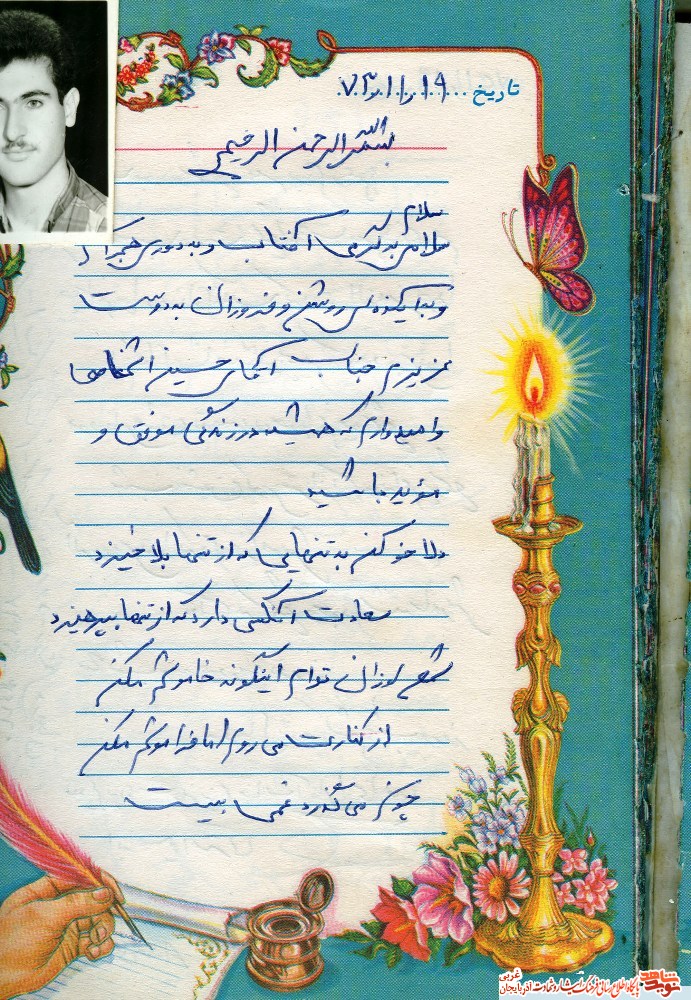 تاریخ ۷۳٫۱۱٫۱۹
بسم الله الرحمن الرحیم
سلام
سلامی به گرمی آفتاب و به دوری
و به آینده‌ای روشن و فروزان به دوست
عزیزم جناب آقای حسین
و امیدوارم که همیشه در زندگی موفق و
مؤید باشید
دلا خو کن به تنهایی که از تنها بلا خیزد
سعادت آنکسی دارد که از تنها بپرهیزد
شمع لرزان توام اینگونه خاموشم مکن
از کنارت می روم اما فراموشم مکن
چون می گذرد غمی نیست
نوید شاهد
آذربایجان غربی
پایگاه اطلاع رسانی فرهنگ ایثار و شهادت